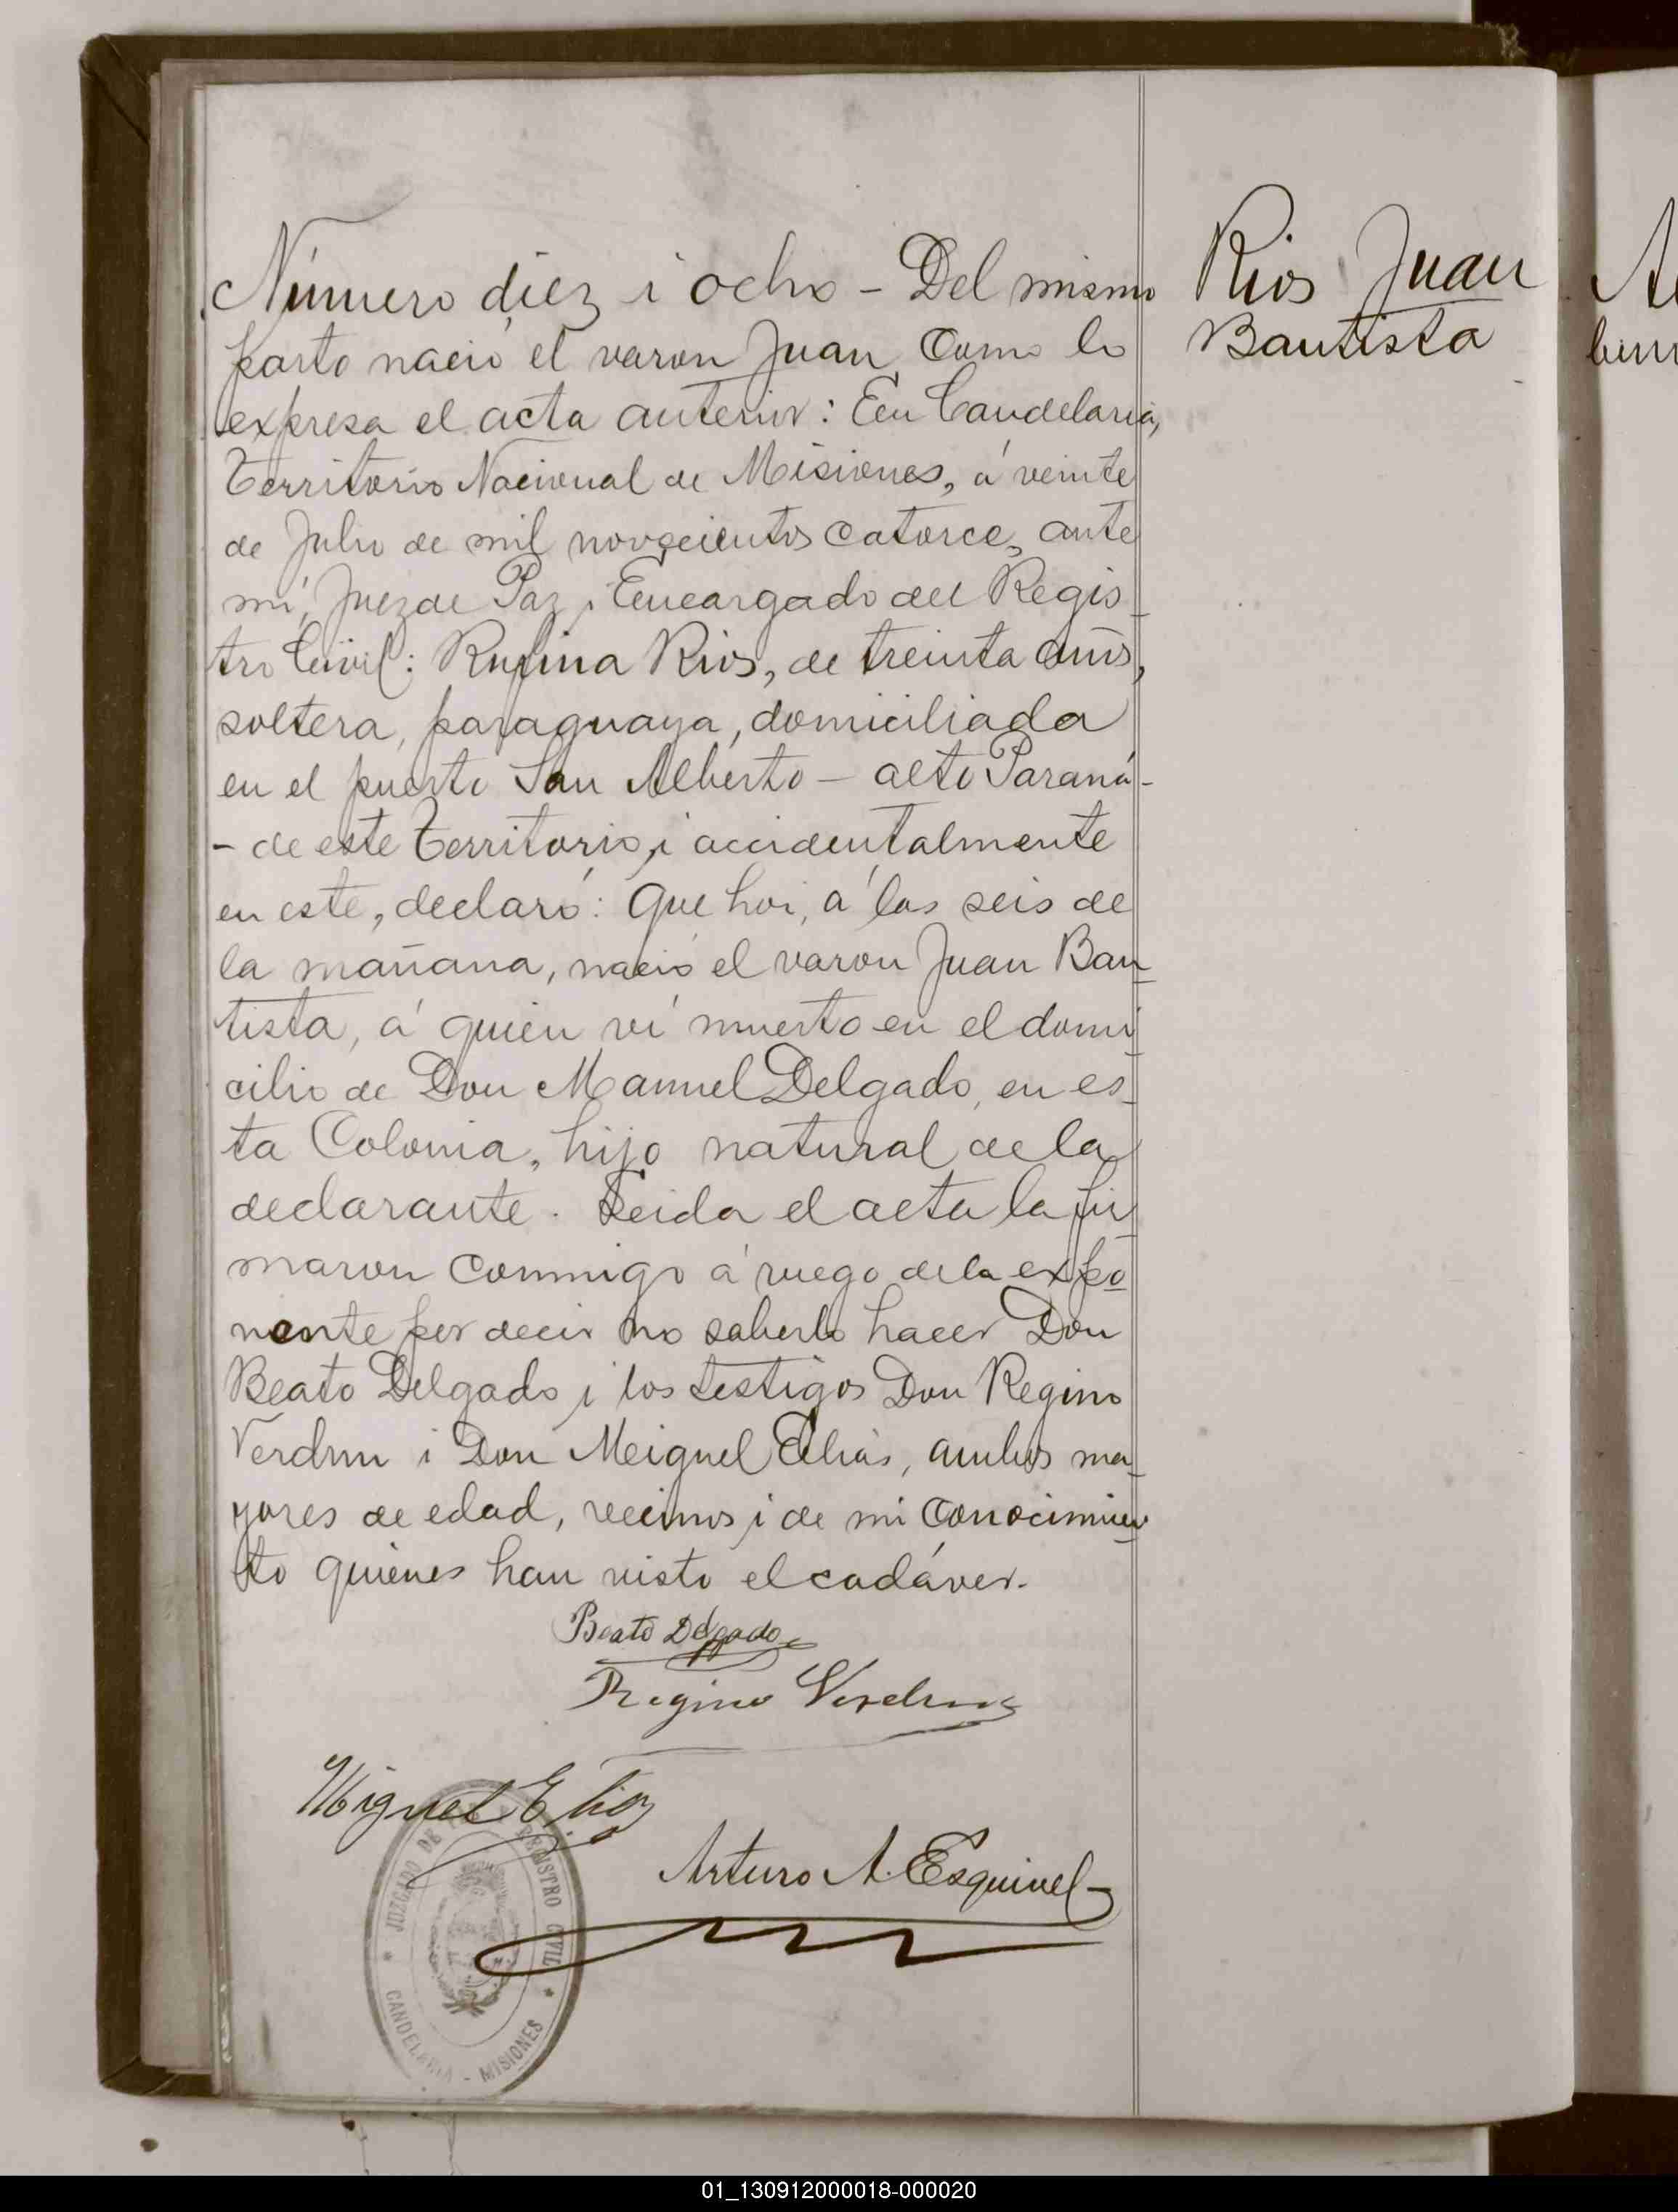 Número diez i ocho - Del mismo
parto nació el varon Juan, como lo
expresa el acta anterior: En Candelaria,
Territorio Nacional de Misiones, á veinte
de Julio de mil novecientos catorce, ante
mí, Juez de Paz i Encargado del Regis_
tro Civil: Rufina Rios, de treinta años,
soltera, paraguaya, domiciliada
en el puerto San Alberto - alto Paraná -
- de este Territorio, i accidentalmente
en este, declaró: Que hoi, á las seis de
la mañana, nació el varon Juan Bau_
tista, á quien ví muerto en el domi_
cilio de Don Manuel Delgado, en es_
ta Colonia, hijo natural de la
declarante. Leida el acta la fir_
maron conmigo á ruego de la expo_
nente por decir no saberlo hacer Don
Beato Delgado i los testigos Don Regino
Verdun i Don Meiguel Elías, ambos ma_
yores de edad, vecinos i de mi conocimien_
to quienes han visto el cadáver.
Beato Delgado
Regino Verdun
Miguel Elias
Arturo A. Esquivel
JUZGADO DE REGISTRO CIVIL
CANDELARIA - MISIONES
Rios Juan
Bautista
01_130912000018-000020